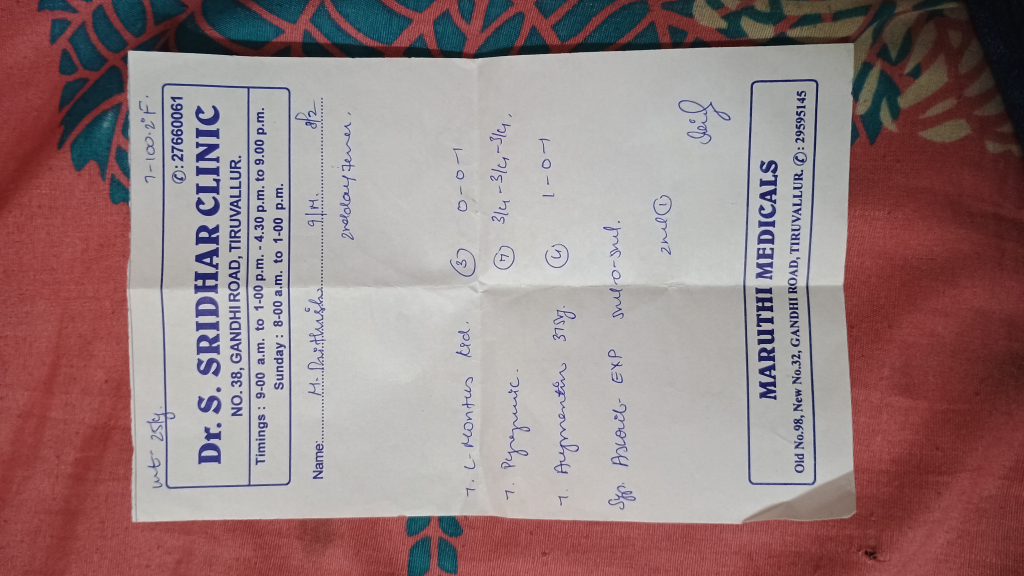 wt- 25kg T-100.2°F.
✆: 27660061
Dr. S. SRIDHAR CLINIC
NO. 38, GANDHI ROAD, TIRUVALLUR.
Timings : 9-00 a.m. to 1-00 p.m. - 4.30 p.m. to 9.00 p.m.
Sunday : 8-00 a.m. to 1-00 p.m.
Name: M. 9/M. 8/2
2nd day Fever.
T. L-Montus ③ 0-0-1
T. ⑦ 3/4-3/4-3/4.
T. 375g. ④ 1-0-1
Syp. EXP 5ml-0-5ml.
①
MARUTHI MEDICALS
Old No.98, New No.32, GANDHI ROAD, TIRUVALLUR. ✆: 29595145